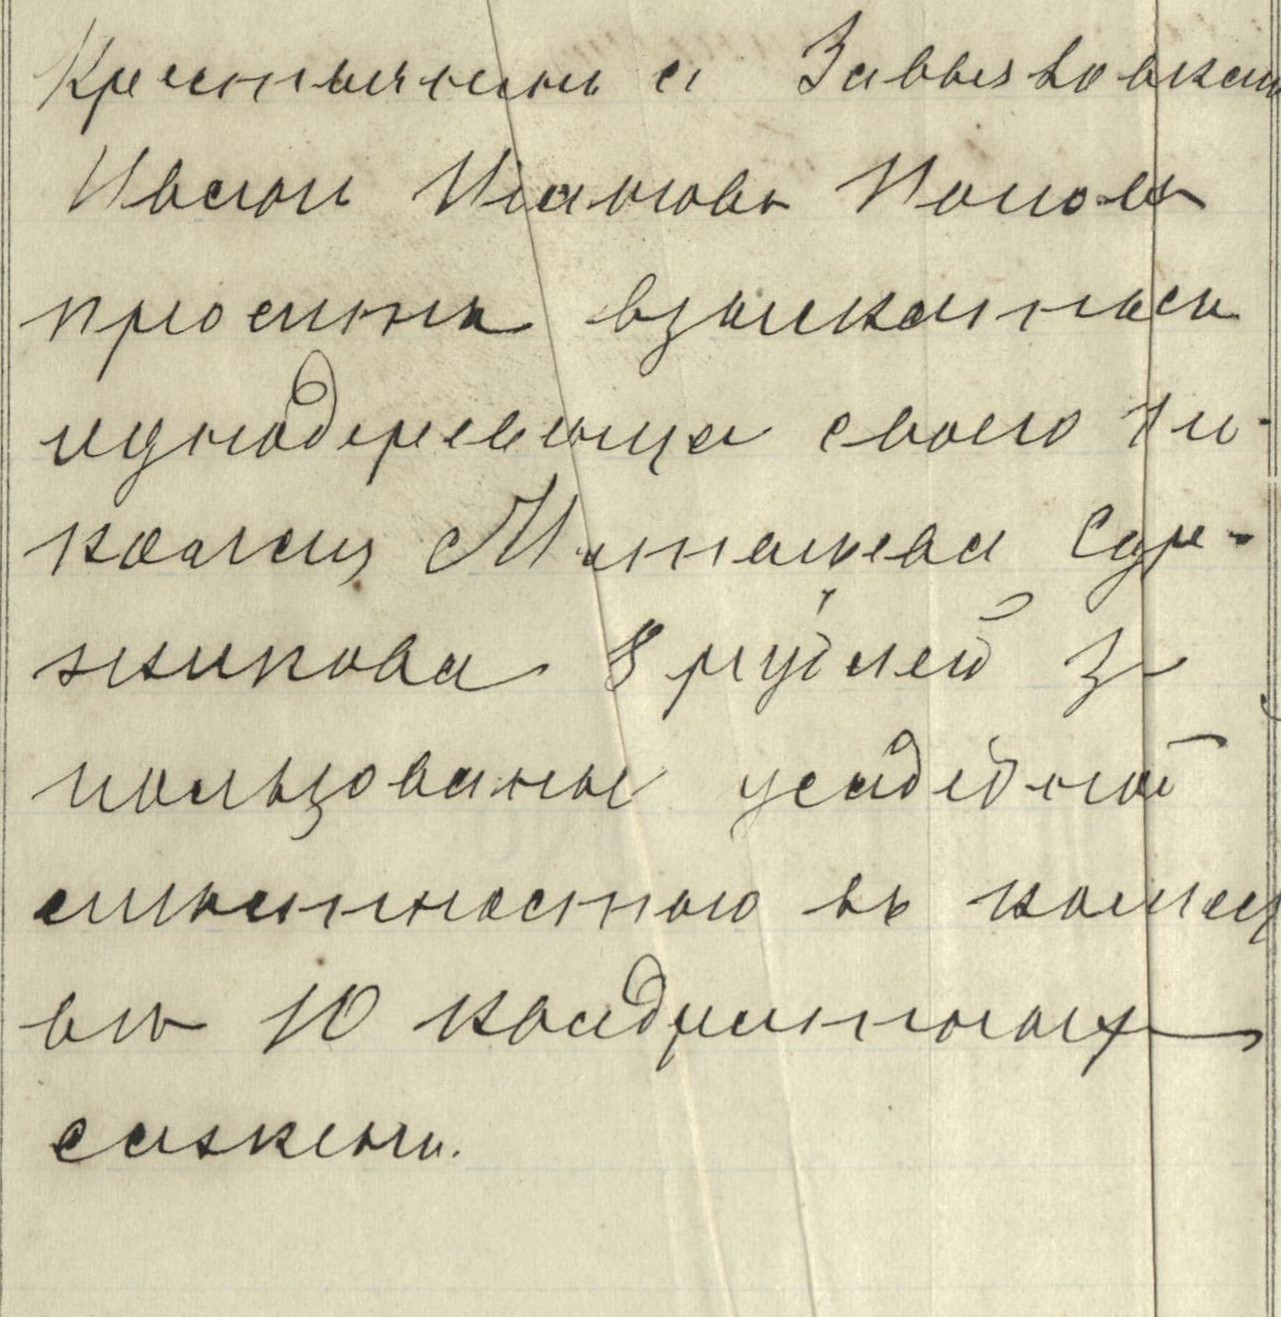 Крестьянинъ с. Завьяловскаго
Иванъ Ивановъ Поповъ
проситъ взыскать съ
однодеревенца своего Ни-
колая Матвеева Сер-
никова 8 рублей за
пользованье усадебной
мѣстностью въ колич
въ 10 квадратныхъ
сажень.